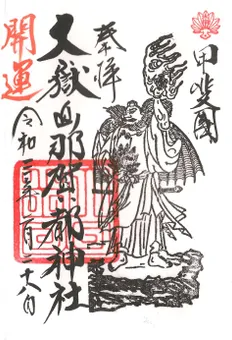 甲斐國
奉拝
大嶽山那賀都神社
開運
令和 年 月二十八日